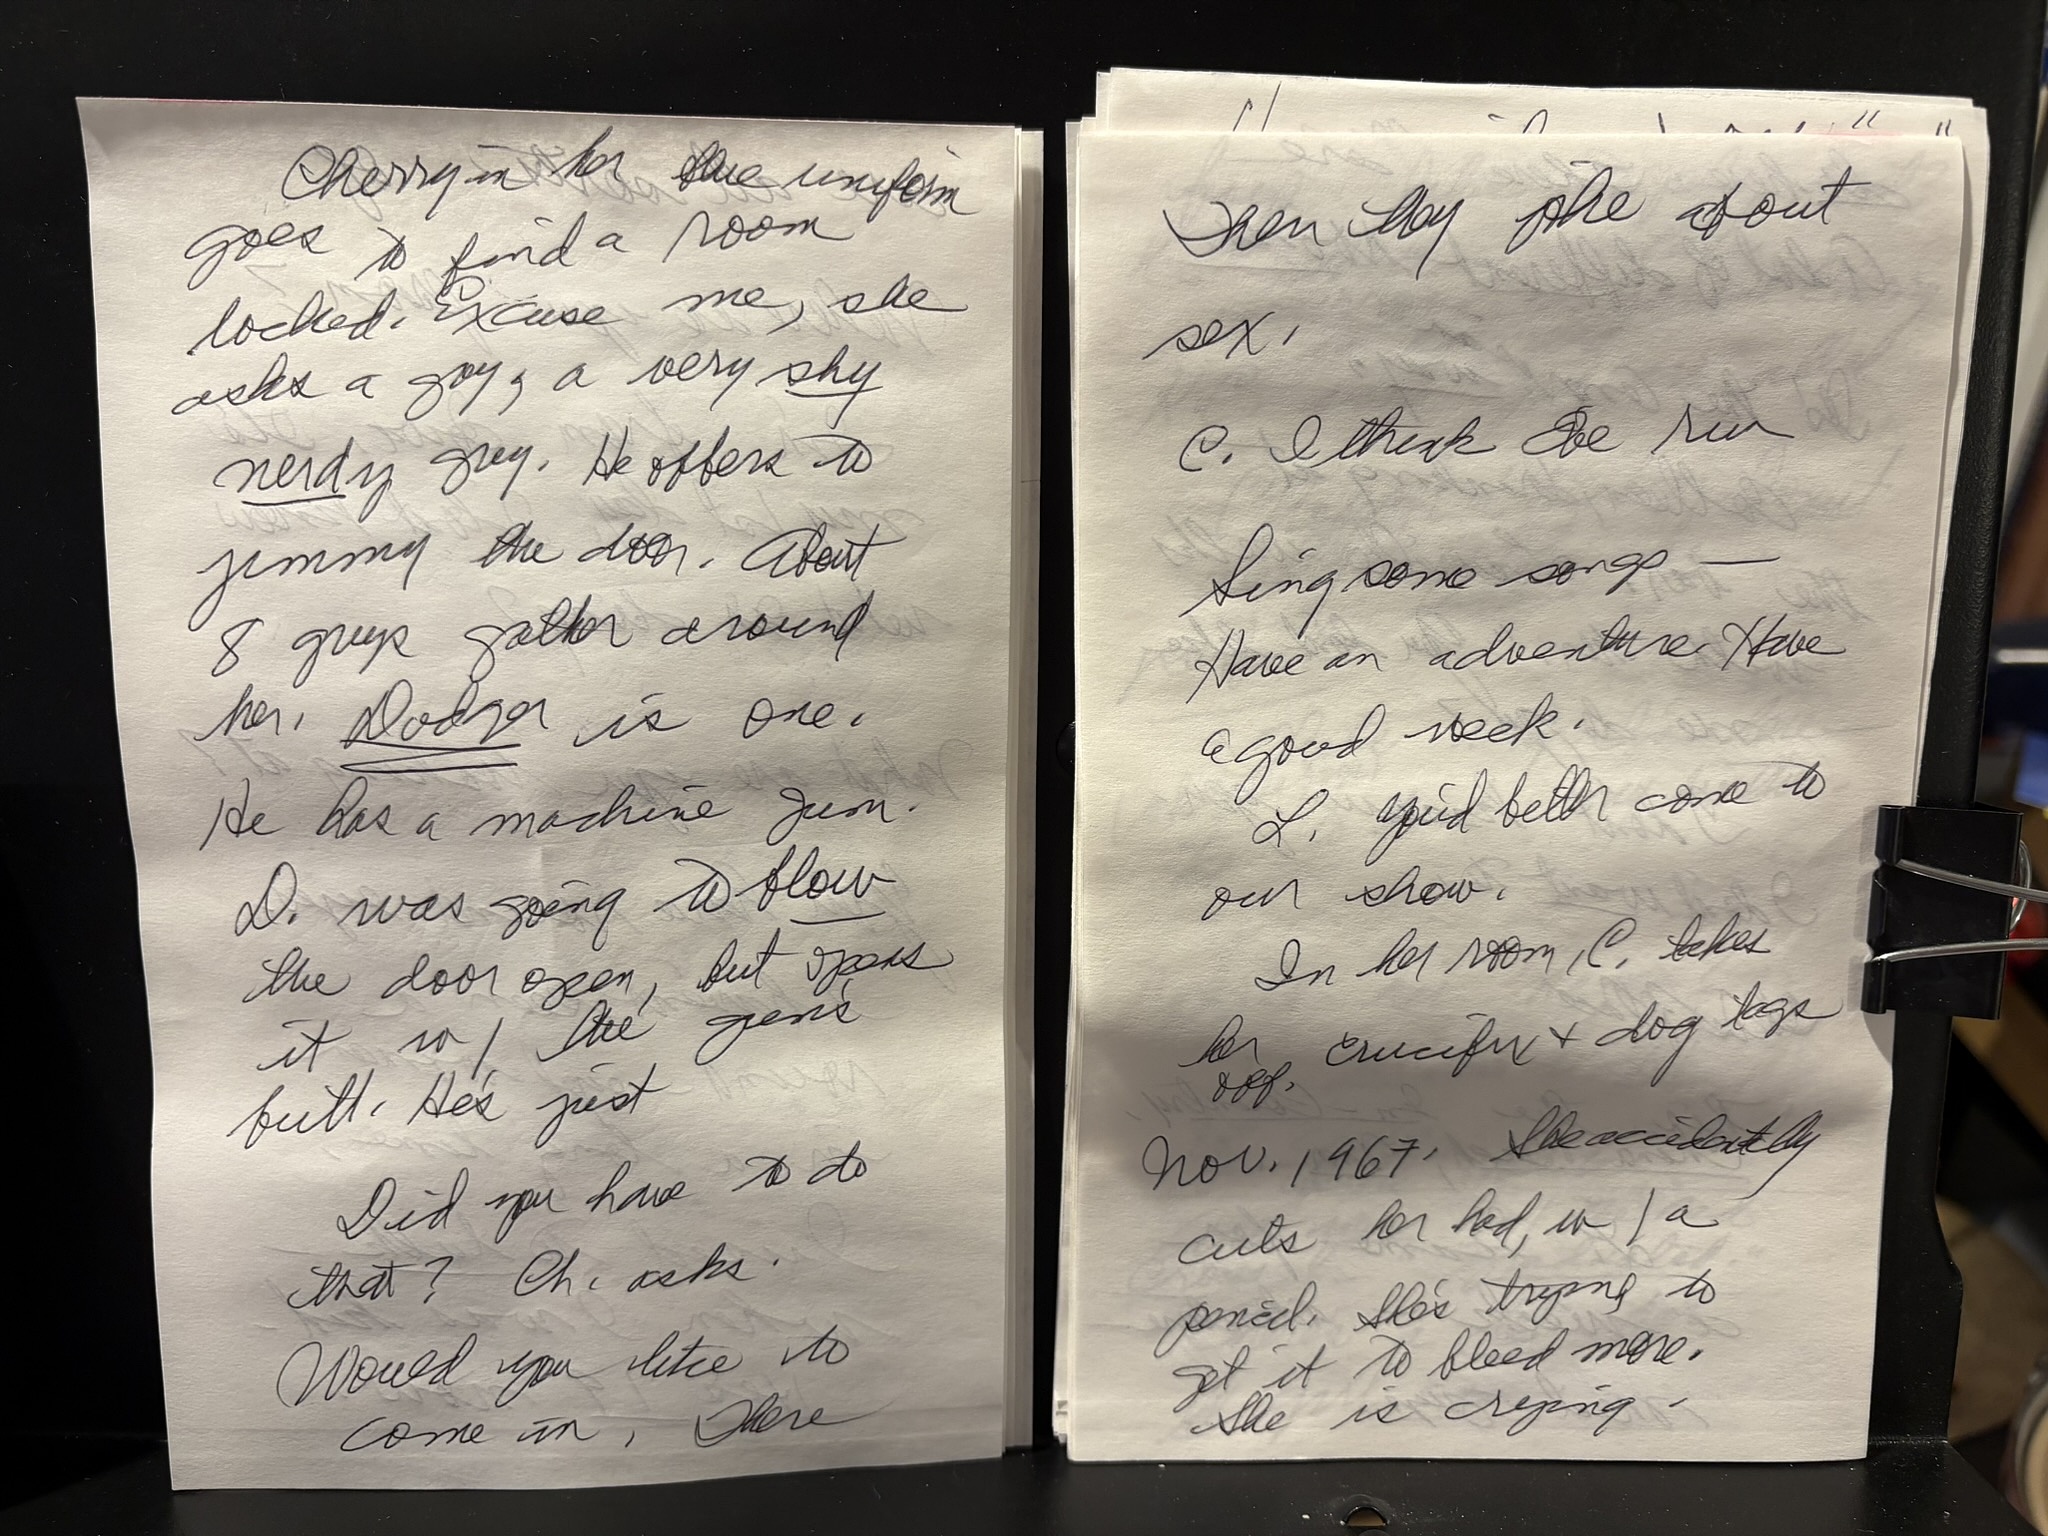 Cherry in her blue uniform
goes to find a room
locked. Excuse me, she
asks a guy, a very shy
nerdy guy. He offers to
jimmy the door. About
8 guys gather around
her. Dodger is one.
He has a machine gun.
D. was going to blow
the door open, but opens
it w/ the gun's
butt. He's just
Did you have to do
that? Ch. asks.
Would you like to
come in, there
Then they joke about
sex.
C. I think
Sing some songs —
Have an adventure. Have
a good week.
L. You'd better come to
our show.
In her room, C. takes
her crucifix + dog tags
off.
Nov. 1967. She accidently
cuts her had, w/ a
pencil. She's trying to
get it to bleed more.
She is crying.